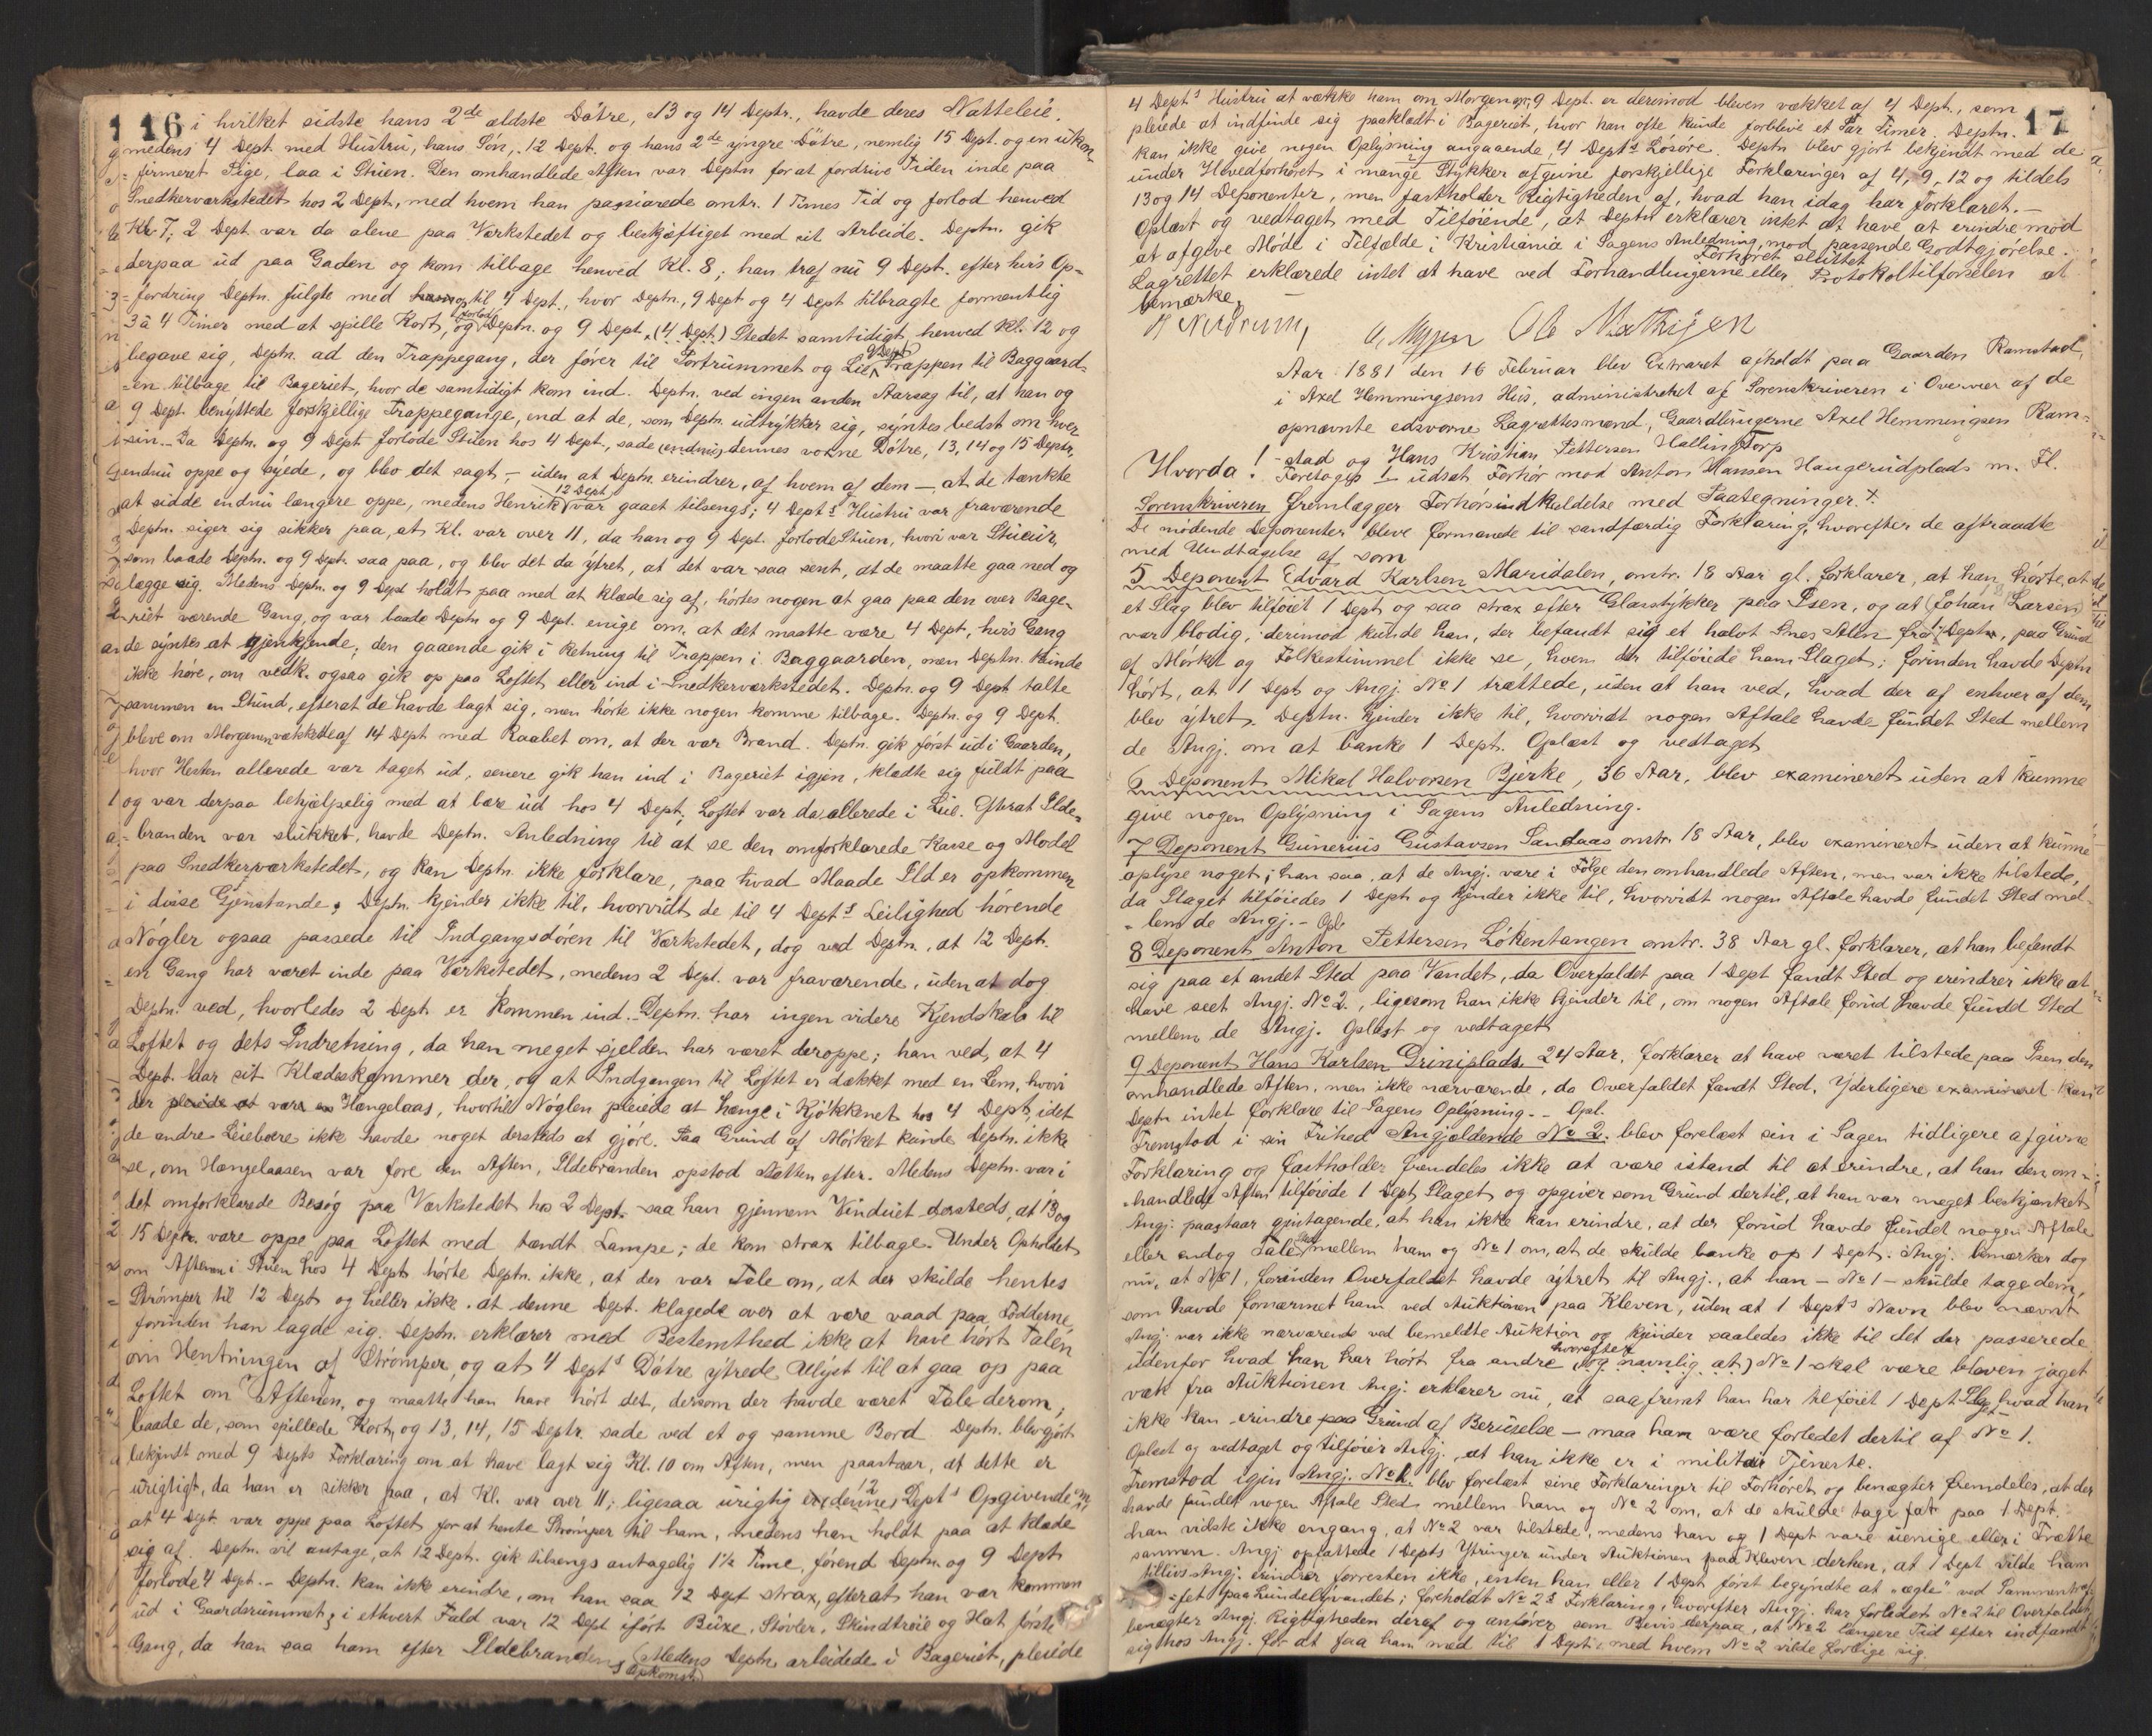 16
i hvilket sidste hans 2de ældste Døtre, 13 og 14 Deptr., havde deres Natteleie,
medens 4 Dept. med Hustru, hans Søn, 12 Dept. og hans 2de yngre Døtre, nemlig 15 Dept. og en ukon-
= firmeret Pige, laa i Stuen. Den omhandlede Aften var Deptn for at fordrive Tiden inde paa
Snedkerværkstedet hos 2 Dept., med hvem han passiarede omtr. 1 Times Tid og forlod henved
Kl. 7; 2 Dept var da alene paa Værkstedet og beskjæftiget med sit Arbeide. Deptn. gik
derpaa ud paa Gaden og kom tilbage henved Kl. 8; han traf nu 9 Dept. efter hvis Op-
= fordring Deptn. fulgte med op til 4 Dept., hvor Deptn., 9 Dept og 4 Dept tilbragte formentlig
3 à 4 Timer med at spille Kort, og forlod Deptn. og 9 Dept. (4 Dept.) Stedet samtidigt henved Kl. 12 og
begave sig, Deptn. ad den Trappegang, der fører til Portrummet og 9 Dept Trappen til Baggaard-
= en tilbage til Bageriet, hvor de samtidigt kom ind. Deptn. ved ingen anden Aarsag til, at han og
9 Dept. benyttede forskjellige Trappegange, end at de, som Deptn. udtrykker sig, syntes bedst om hver
sin. - Da Deptn. og 9 Dept forlode Stuen hos 4 Dept., sade (endnu) dennes voxne Døtre, 13, 14 og 15 Deptr,
endnu oppe og syede, og blev det sagt, - uden at Deptn. erindrer, af hvem af dem - at de tænkte
at sidde endnu længere oppe, medens Henrik 12 Dept var gaaet tilsengs; 4 Depts Hustru var fraværende
Deptn. siger sig sikker paa, at Kl. var over 11, da han og 9 Dept. forlode Stuen, hvori var Stueur,
som baade Deptn. og 9 Dept. saa paa, og blev det da ytret, at det var saa sent, at de maatte gaa ned og
lægge sig. Medens Deptn. og 9 Dept holdt paa med at klæde sig af, hørtes nogen at gaa paa den over Bage-
riet værende Gang, og var baade Deptn og 9 Dept. enige om, at det maatte være 4 Dept, hvis Gang
de syntes at gjenkjende; den gaaende gik i Retning til Trappen i Baggaarden, men Deptn. kunde
ikke høre, om vedk. ogsaa gik op paa Loftet eller ind i Snedkerværkstedet. Deptn. og 9 Dept talte
sammen en Stund, efterat de havde lagt sig, men hørte ikke nogen komme tilbage. Deptn. og 9 Dept.
bleve om Morgenen vækkede af 14 Dept med Raabet om, at der var Brand. Deptn. gik først ud i Gaarden,
hvor Hesten allerede var taget ud, senere gik han ind i Bageriet igjen, klædte sig fuldt paa
og var derpaa behjælpelig med at bære ud hos 4 Dept; Loftet var da allerede i Lue. Efterat Ilde-
= branden var slukket, havde Deptn. Anledning til at se den omforklarede Kasse og Model
paa Snedkerværkstedet, og kan Deptn. ikke forklare, paa hvad Maade Ild er opkommen
i disse Gjenstande; Deptn. kjender ikke til, hvorvidt de til 4 Depts Leilighed hørende
Nøgler ogsaa passede til Indgangsdøren til Værkstedet, dog ved Deptn., at 12 Dept.
en Gang har været inde paa Værkstedet, medens 2 Dept. var fraværende, uden at dog
Deptn. ved, hvorledes 2 Dept. er kommen ind. - Deptn. har ingen videre Kjendskab til
Loftet og dets Indretning, da han meget sjelden har været deroppe; han ved, at 4
Dept. har sit Klædeskammer der, og at Indgangen til Loftet er dækket med en Lem, hvori
der pleide at være en Hængelaas, hvortil Nøglen pleiede at hænge i Kjøkkenet hos 4 Dept, idet
de andre Leieboere ikke havde noget dersteds at gjøre. Paa Grund af Mørket kunde Deptn. ikke
se, om Hængelaasen var fore den Aften, Ildebranden opstod Natten efter. Medens Deptn. var i
det omforklarede Besøg paa Værkstedet hos 2 Dept. saa han gjennem Vinduet dersteds, at 13 og
15 Deptr. vare oppe paa Loftet med tændt Lampe; de kom strax tilbage. Under Opholdet
om Aftenen i Stuen hos 4 Dept hørte Deptn. ikke, at der var Tale om, at der skulde hentes
Strømper til 12 Dept og heller ikke at denne Dept. klagede over at være vaad paa Fødderne,
forinden han lagde sig. Deptn. erklærer med Bestemthed ikke at have hørt Talen
om Hentningen af Strømper, og at 4 Depts Døtre ytrede Ulyst til at gaa op paa
Loftet om Aftenen, og maatte han have hørt det, dersom der havde været Tale derom,
baade de, som spillede Kort, og 13, 14, 15 Deptr. sade ved et og samme Bord. Deptn. blev gjort
bekjendt med 9 Depts Forklaring om at have lagt sig Kl. 10 om Aften, men paastaar, at dette er
urigtigt, da han er sikker paa, at Kl. var over 11; ligesaa urigtig er (dennes) 12 Depts Opgivende om,
at 4 Dept. var oppe paa Loftet for at hente Strømper til ham, medens han holdt paa at klæde
sig af. Deptn. vil antage, at 12 Dept. gik tilsengs antagelig 1½ Time, førend Deptn. og 9 Dept
forlode 4 Dept. - Deptn. kan ikke erindre, om han saa 12 Dept strax, efterat han var kommen
ud i Gaardsrummet; i ethvert Fald var 12 Dept iført Buxe, Støvler, Skindtrøie og Hat første
Gang, da han saa ham efter Ildebrandens Opkomst. (Medens Deptn. arbeidede i Bageriet, pleiede
17
4 Depts Hustru at vække ham om Morgenen; 9 Dept. er derimod bleven vækket af 4 Dept., som
pleiede at indfinde sig paaklædt i Bageriet, hvor han ofte kunde forblive et Par Timer. Deptn.
kan ikke give nogen Oplysning angaaende 4 Depts Løsøre. Deptn blev gjort bekjendt med de
under Hovedforhøret i mange Stykker afgivne forskjellige Forklaringer af 4, 9, 12 og tildels
13 og 14 Deponenter, men fastholder Rigtigheden af, hvad han idag har forklaret. -
Oplæst og vedtaget med Tilføiende, at Deptn erklærer intet at have at erindre mod
at afgive Møde i Tilfælde i Kristiania i Sagens Anledning, mod passende Godtgjørelse.
Forhøret sluttet
Lagrettet erklærede intet at have ved Forhandlingerne eller Protokoltilførselen at
bemærke.
Ole Mathisen
Aar 1881 den 16 Februar blev Extraret afholdt paa Gaarden Ramstad,
i Axel Hemmingsens Hus, administreret af Sorenskriveren i Overvær af de
opnævnte edsvorne Lagrettesmænd, Gaardbrugerne Axel Hemmingsen Ram-
- stad og Hans Kristian Pettersen Hallingtorp
Hvorda! Foretoges 1 udsat Forhør mod Anton Hansen Haugerudplads m. Fl.
Sorenskriveren fremlægger Forhørsindkaldelse med Paategninger.
De mødende Deponenter bleve formanede til sandfærdig Forklaring, hvorefter de aftraadte
med Undtagelse af som
5 Deponent Edvard Karlsen Maridalen, omtr. 18 Aar gl. forklarer, at han hørte, at
et Slag blev tilføiet 1 Dept og saa strax efter Glasstykker paa Isen, og at (Johan Larsen)
var blodig, derimod kunde han, der befandt sig et halvt Snes Alen fra 1 Dept, paa Grund
af Mørket og Folkestimmel ikke se, hvem der tilføiede ham Slaget; forinden havde Deptn
hørt, at 1 Dept og Angj. No 1 trættede, uden at han ved, hvad der af enhver af dem
blev ytret. Deptn. kjender ikke til, hvorvidt nogen Aftale havde fundet Sted mellem
de Angj. om at banke 1 Dept. Oplæst og vedtaget
6 Deponent Mikal Halvorsen Bjerke, 36 Aar, blev examineret uden at kunne
give nogen Oplysning i Sagens Anledning.
7 Deponent Gunerius Gustavsen Sandaas omtr. 18 Aar, blev examineret uden at kunne
oplyse noget; han saa, at de Angj. vare i Følge den omhandlede Aften, men var ikke tilstede,
da Slaget tilføiedes 1 Dept og kjender ikke til, hvorvidt nogen Aftale havde fundet Sted mel-
- lem de Angj. - Opl.
8 Deponent Anton Pettersen Løkentangen omtr. 38 Aar gl. forklarer, at han befandt
sig paa et andet Sted paa Vandet, da Overfaldet paa 1 Dept fandt Sted og erindrer ikke at
have seet Angj. No 2, ligesom han ikke kjender til, om nogen Aftale forud havde fundet Sted
mellem de Angj. Oplæst og vedtaget
9 Deponent Hans Karlsen Griniplads 24 Aar, forklarer at have været tilstede paa Isen den
omhandlede Aften, men ikke nærværende, da Overfaldet fandt Sted. Yderligere examineret kan
Deptn intet forklare til Sagens Oplysning. - Opl.
Fremstod i sin Frihed Angjældende No 2. blev forelæst sin i Sagen tidligere afgivne
Forklaring og fastholder fremdeles ikke at være istand til at erindre, at han den om-
handlede Aften tilføiede 1 Dept Slaget og opgiver som Grund dertil, at han var meget beskjænket
Angj. paastaar gjentagende, at han ikke kan erindre, at der forud havde fundet nogen Aftale
eller endog Tale Sted mellem ham og No 1 om, at de skulde banke op 1 Dept. Angj. bemærker dog
nu, at No 1, forinden Overfaldet havde ytret til Angj., at han - No 1 - skulde tage dem,
som havde fornærmet ham ved Auktionen paa Kleven, uden at 1 Depts Navn blev nævnt
Angj. var ikke nærværende ved bemeldte Auktion og kjender saaledes ikke til det der passerede
udenfor hvad han har hørt fra andre hvorefter (og navnlig at) No 1 skal være bleven jaget
væk fra Auktionen. Angj. erklærer nu, at saafremt han har tilføiet 1 Dept Slaget hvad han
ikke kan erindre paa Grund af Beruselse - maa han være forledet dertil af No 1.
Oplæst og vedtaget og tilføier Angj., at han ikke er i militær Tjeneste.
Fremstod igjen Angj. No 1. blev forelæst sine Forklaringer til Forhøret og benægter fremdeles, at der
havde fundet nogen Aftale Sted mellem ham og No 2 om, at de skulde tage fat paa 1 Dept.
han vidste ikke engang, at No 2 var tilstede, medens han og 1 Dept vare uenige eller i Trætte
sammen. Angj. opfattede 1 Depts Ytringer under Auktionen paa Kleven derhen, at 1 Dept vilde ham
tillivs Angj. erindrer forresten ikke, enten han eller 1 Dept først begyndte at "ægle" ved Sammentræf-
= fet paa; foreholdt No 2s Forklaring, hvorefter Angj. har forledet No 2 til Overfaldet
benægter Angj. Rigtigheden deraf og anfører som Bevis derpaa, at No 2 længere Tid efter indfandt
sig hos Angj. for at faa ham med til 1 Dept., med hvem No 2 vilde forlige sig.